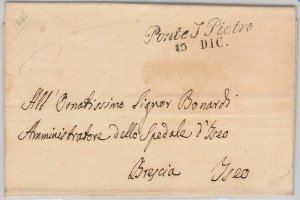 Ponte S. Pietro
15 DIC.
All' Ornatissimo Signor Bonardi
Amministratore dello Spedale d'Iseo
Brescia Iseo